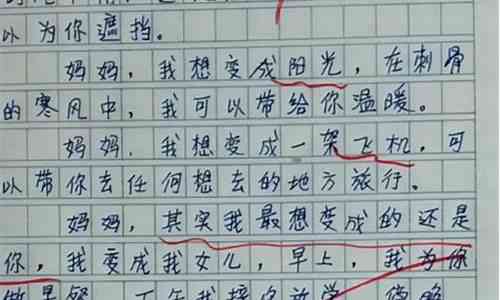 以为你遮挡。
妈妈，我想变成阳光，在刺骨
的寒风中，我可以带给你温暖。
妈妈，我想变成一架飞机，可
以带你去任何想去的地方旅行。
妈妈，其实我最想变成的还是
你，我变成我女儿，早上，我为你